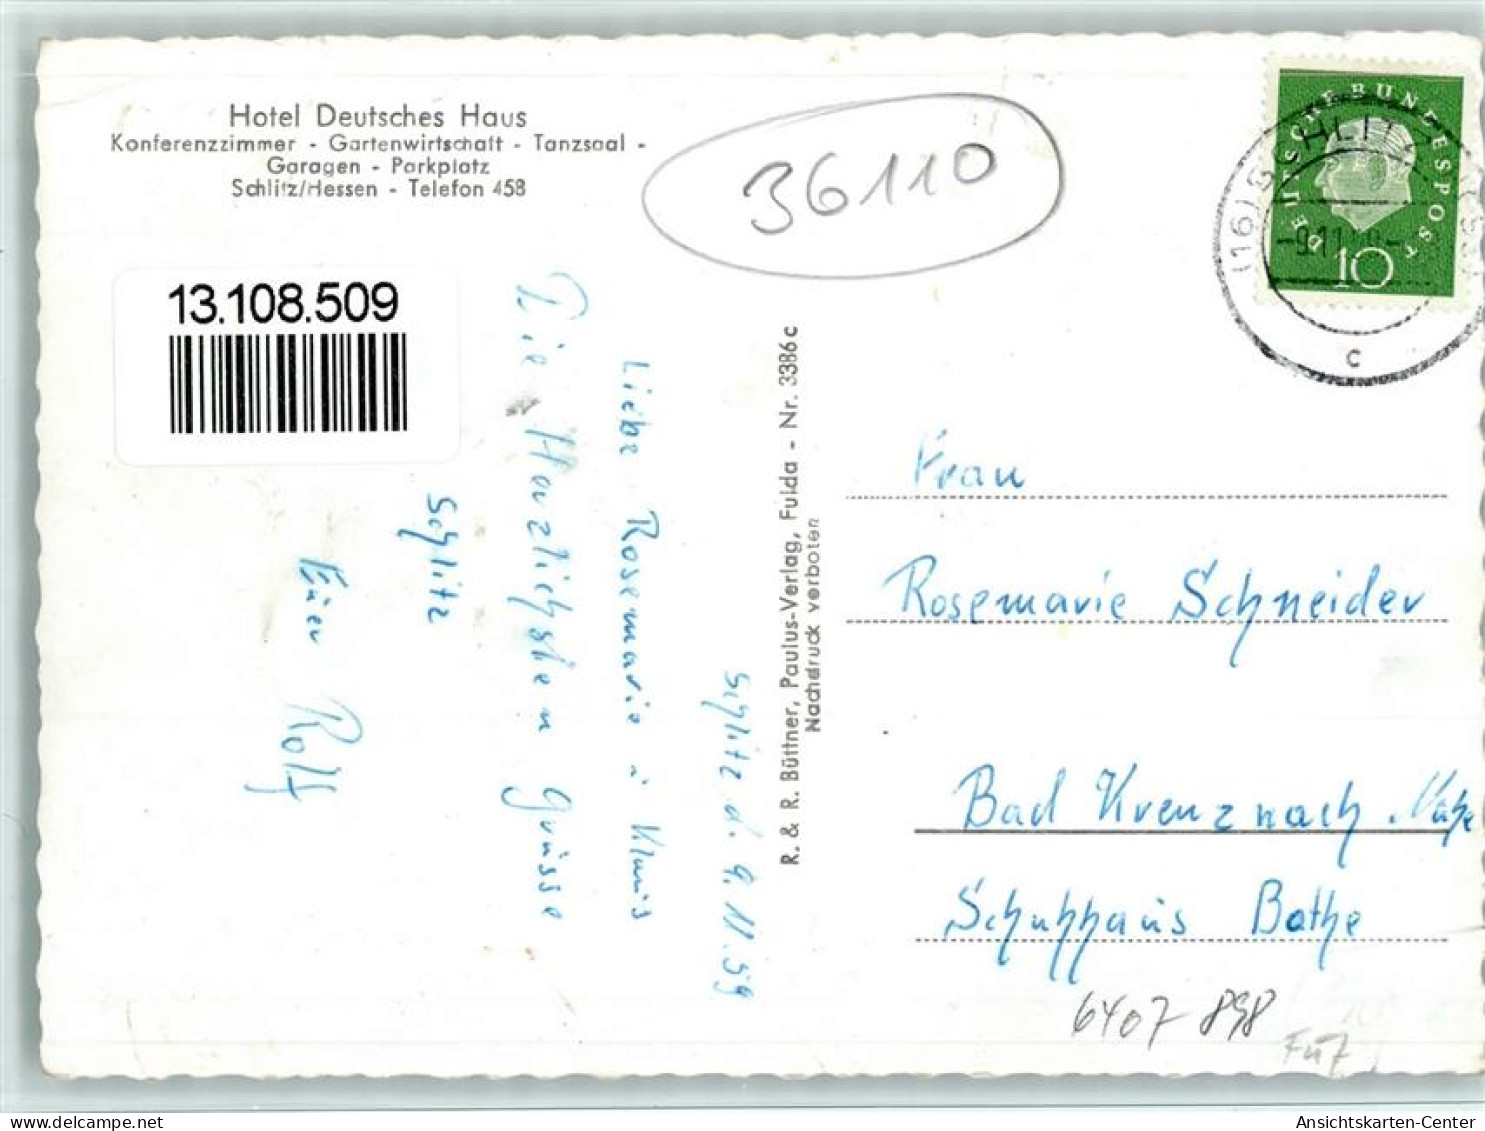 Hotel Deutsches Haus
Konferenzzimmer - Gartenwirtschaft - Tanzsaal -
Garagen - Parkplatz
Schlitz/Hessen - Telefon 458
36110
13.108.509
DEUTSCHE BUNDESPOST
10
(16) SCHLITZ
-9.11.
c
Schlitz d. 9.11.59
Liebe Rosemarie u Klaus
Die Herzlichsten Grüsse
Schlitz
Euer
Rolf
R. & R. Büttner, Paulus-Verlag, Fulda - Nr. 3386 c
Nachdruck verboten
Frau
Rosemarie Schneider
Bad Kreuznach Nahe
Schuhhaus Bothe
6407 898
Ansichtskarten-Center